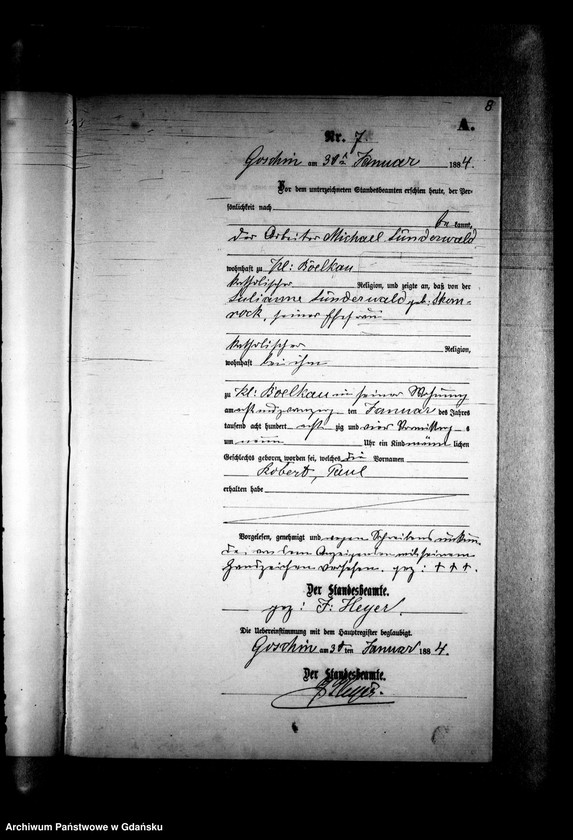 8
A.
Nr. 7
Goschin am 30ten Januar 1884.
Vor dem unterzeichneten Standesbeamten erschien heute, der Per-
sönlichkeit nach
be kannt,
der Arbeiter Michael Sünderwald
wohnhaft zu Kl: Boelkau
katholischer Religion, und zeigte an, daß von der
Julianne Sünderwald geb: Skom-
rock, seiner Ehefrau
katholischer Religion,
wohnhaft bei ihm
zu Kl: Boelkau in seiner Wohnung
am acht und zwanzig ten Januar des Jahres
tausend acht hundert acht zig und vier Vormittag s
um neun Uhr ein Kind männ lichen
Geschlechts geboren worden sei, welches die Vornamen
Robert, Paul
erhalten habe
Vorgelesen, genehmigt und wegen Schreibens unkun-
de, von dem Anzeigenden mit seinem
Handzeichen versehen. gez: † † †.
Der Standesbeamte.
gez: F: Heyer.
Die Uebereinstimmung mit dem Hauptregister beglaubigt.
Goschin am 30 ten Januar 1884.
Der Standesbeamte.
F. Heyer.
Archiwum Państwowe w Gdańsku